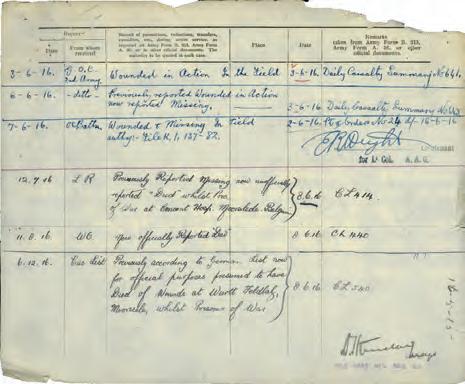 Report
Record of promotions, reductions, transfers,
casualties, etc., during active service, as
reported on Army Form B. 213, Army Form
A. 36, or in other official documents. The
authority to be quoted in each case.
Place
Date
Remarks
taken from Army Form B. 213,
Army Form A. 36, or other
official documents.
Date
From whom
received
3-6-16. 2nd Army Wounded in Action In the Field 3-6-16. Daily Casualty Summary No
6-6-16. -ditto- Previously reported Wounded in Action
now reported Missing. 3-6-16 Daily Casualty Summary No
7-6-16. Wounded & Missing In Field 2-6-16. Pt 2 Order No 24
File K, 1, 137-82.
Lieutenant
for Lt Col. A.A.G.
12.7.16 L R Previously Reported Missing now unofficially
reported "Died" whilst
of War at Convent Hosp. Belgium 8.6.16 CL 414.
11.8.16 WO Now officially Reported "Died" 8.6.16 CL 440
6.12.16 Cas List Previously according to German List now
for official purposes presumed to have
Died of Wounds at
whilst Prisoner of War 8.6.16 CL 540